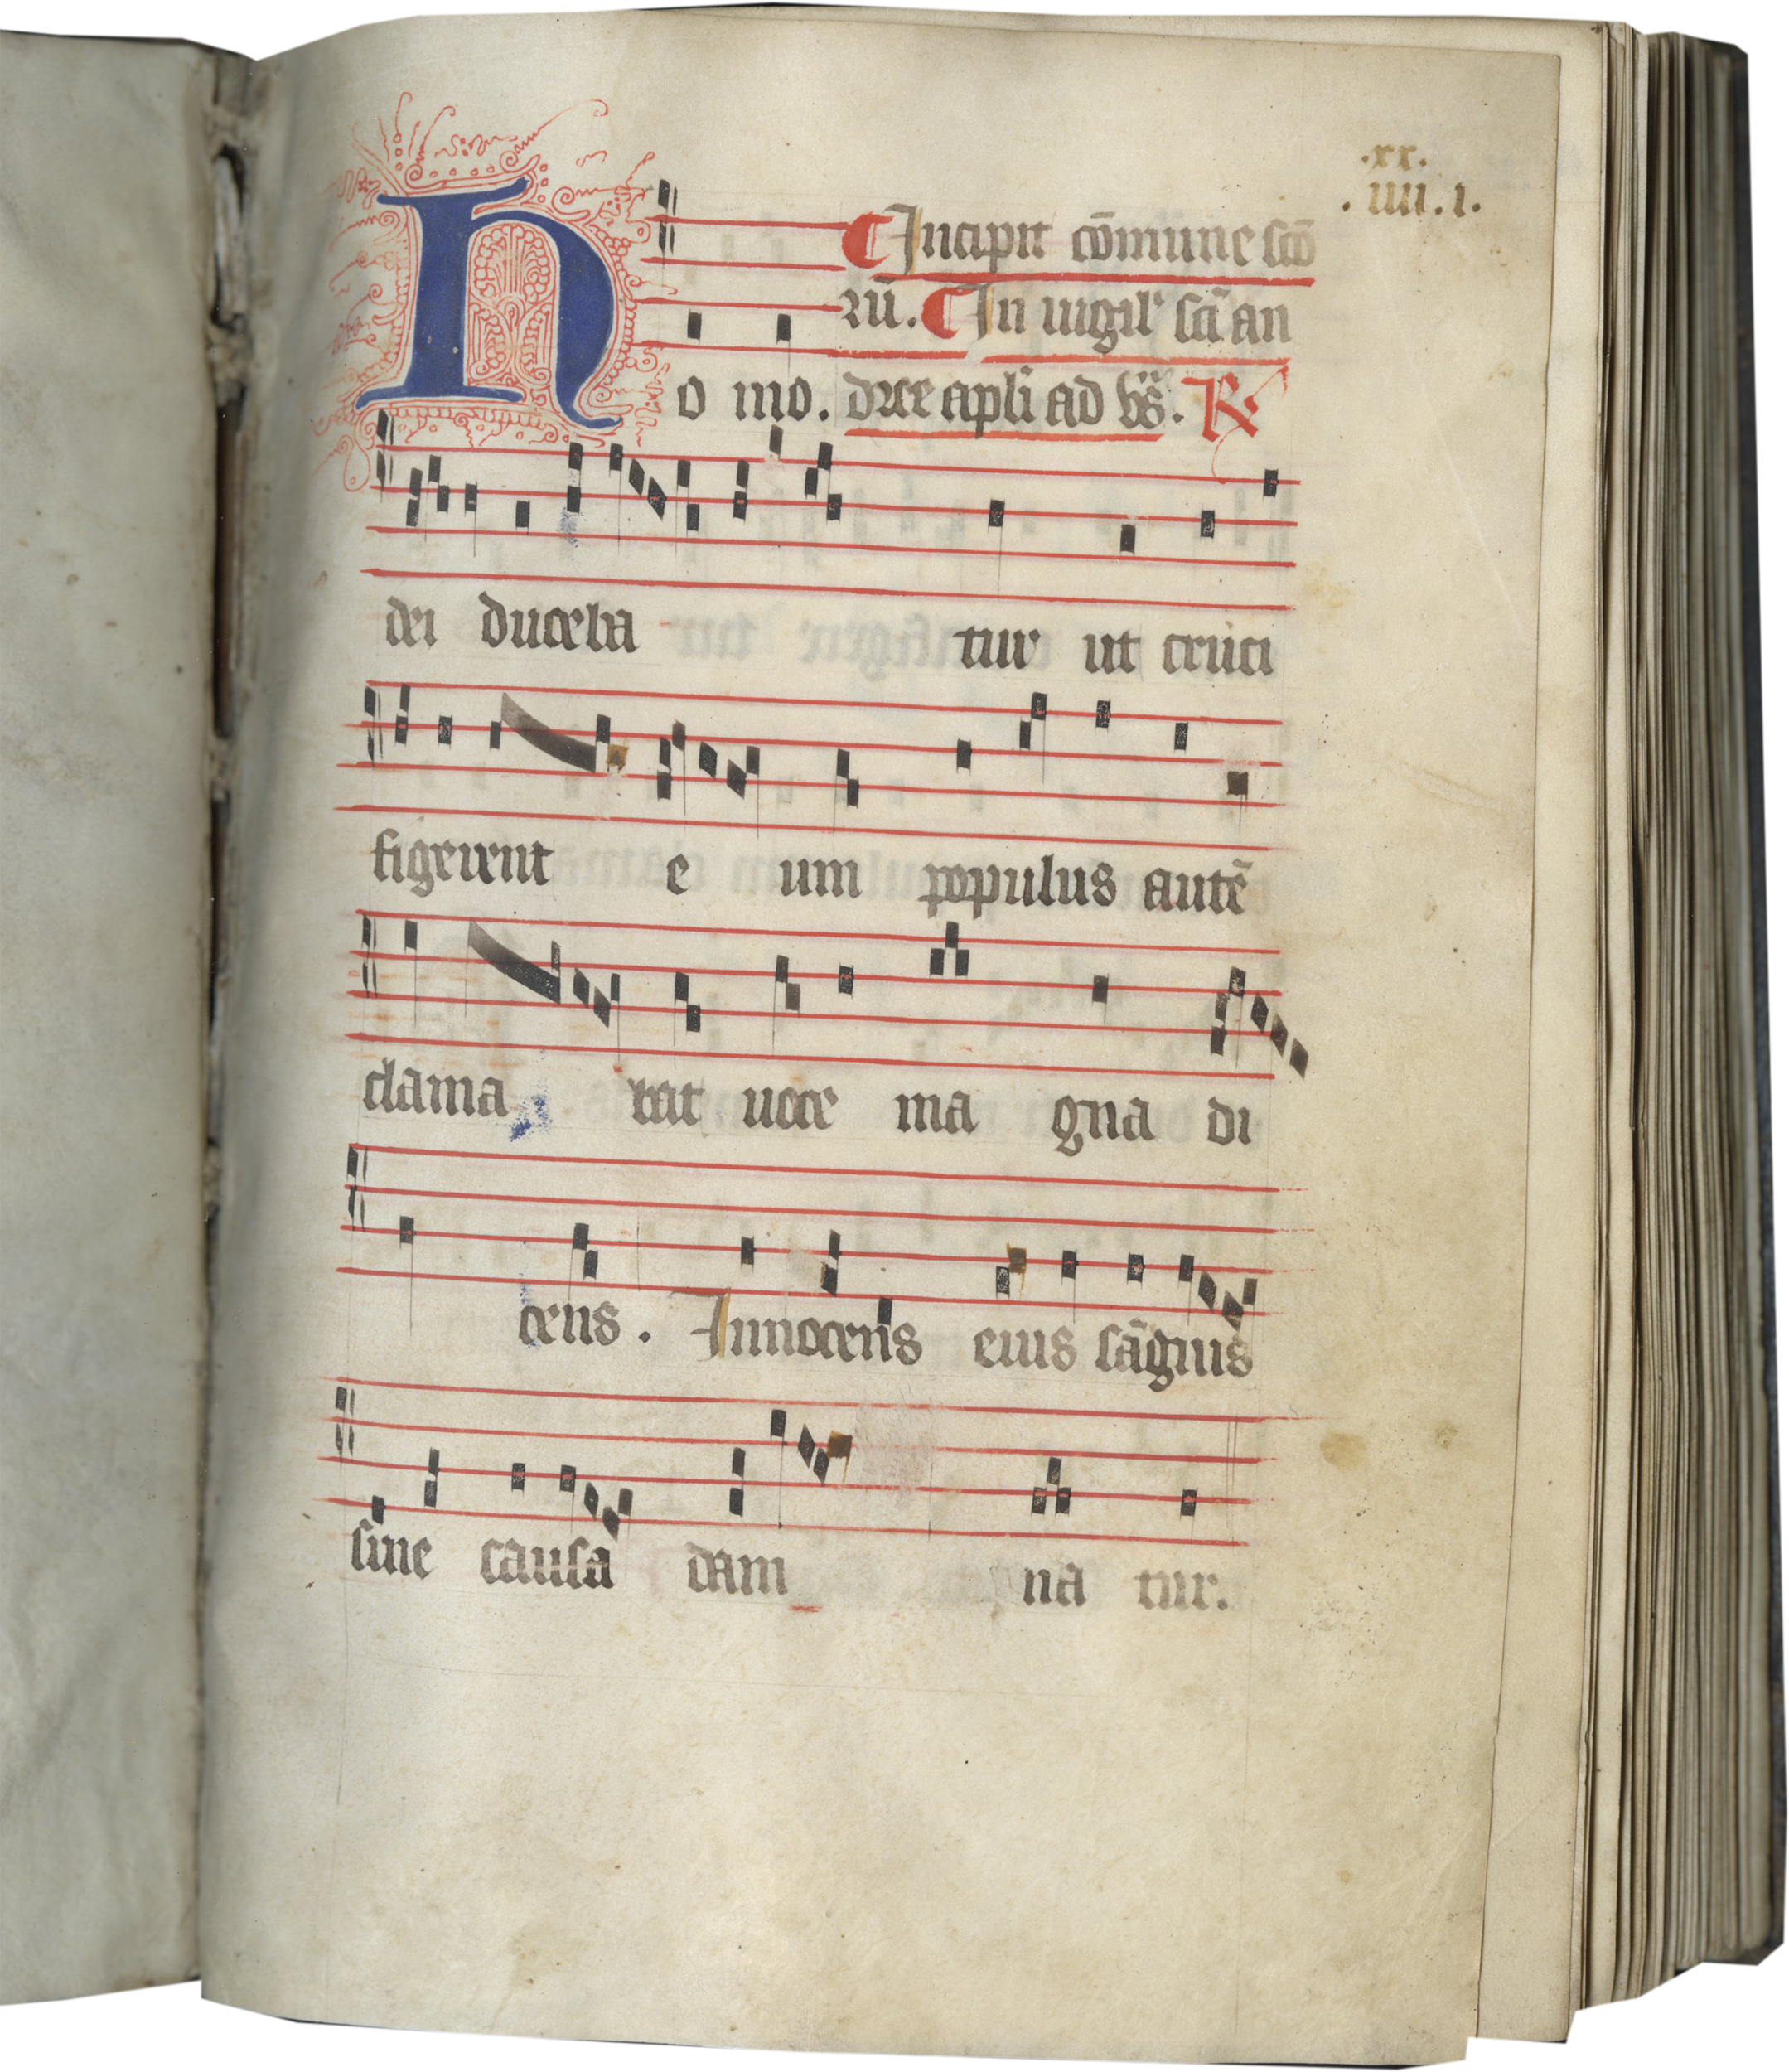 .xx.
.IIII.I.
Incipit cōmune scō
rū. In uigil' sc̄i an
Homo. dree apl'i ad vs̄. R
dei duceba tur ut cruci
figerent e um populus autē
clama bat uoce ma gna di
cens. Innocens eius sāguis
sine causa dam na tur.